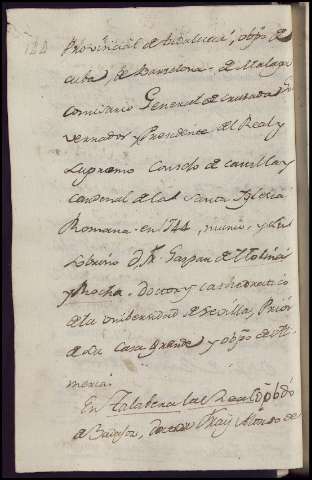 122
Provincial de Andalucia, obpo de
cuba, de Barcelona, de Malaga
comisario General de cruzada, Go
vernador y Presidente del Real y
supremo Consejo de castilla y
cardenal de la santa Iglesia
Romana en 1744, murio, y su
sobrino D. Fr. Gaspar de Molina
y Rocha, doctor y cathedratico
de la universidad de Sevilla, Prior
de su casa grande y obpo de Al
meria.
En Talabera la Real
de Badajoz, doctor Fray Alonso de